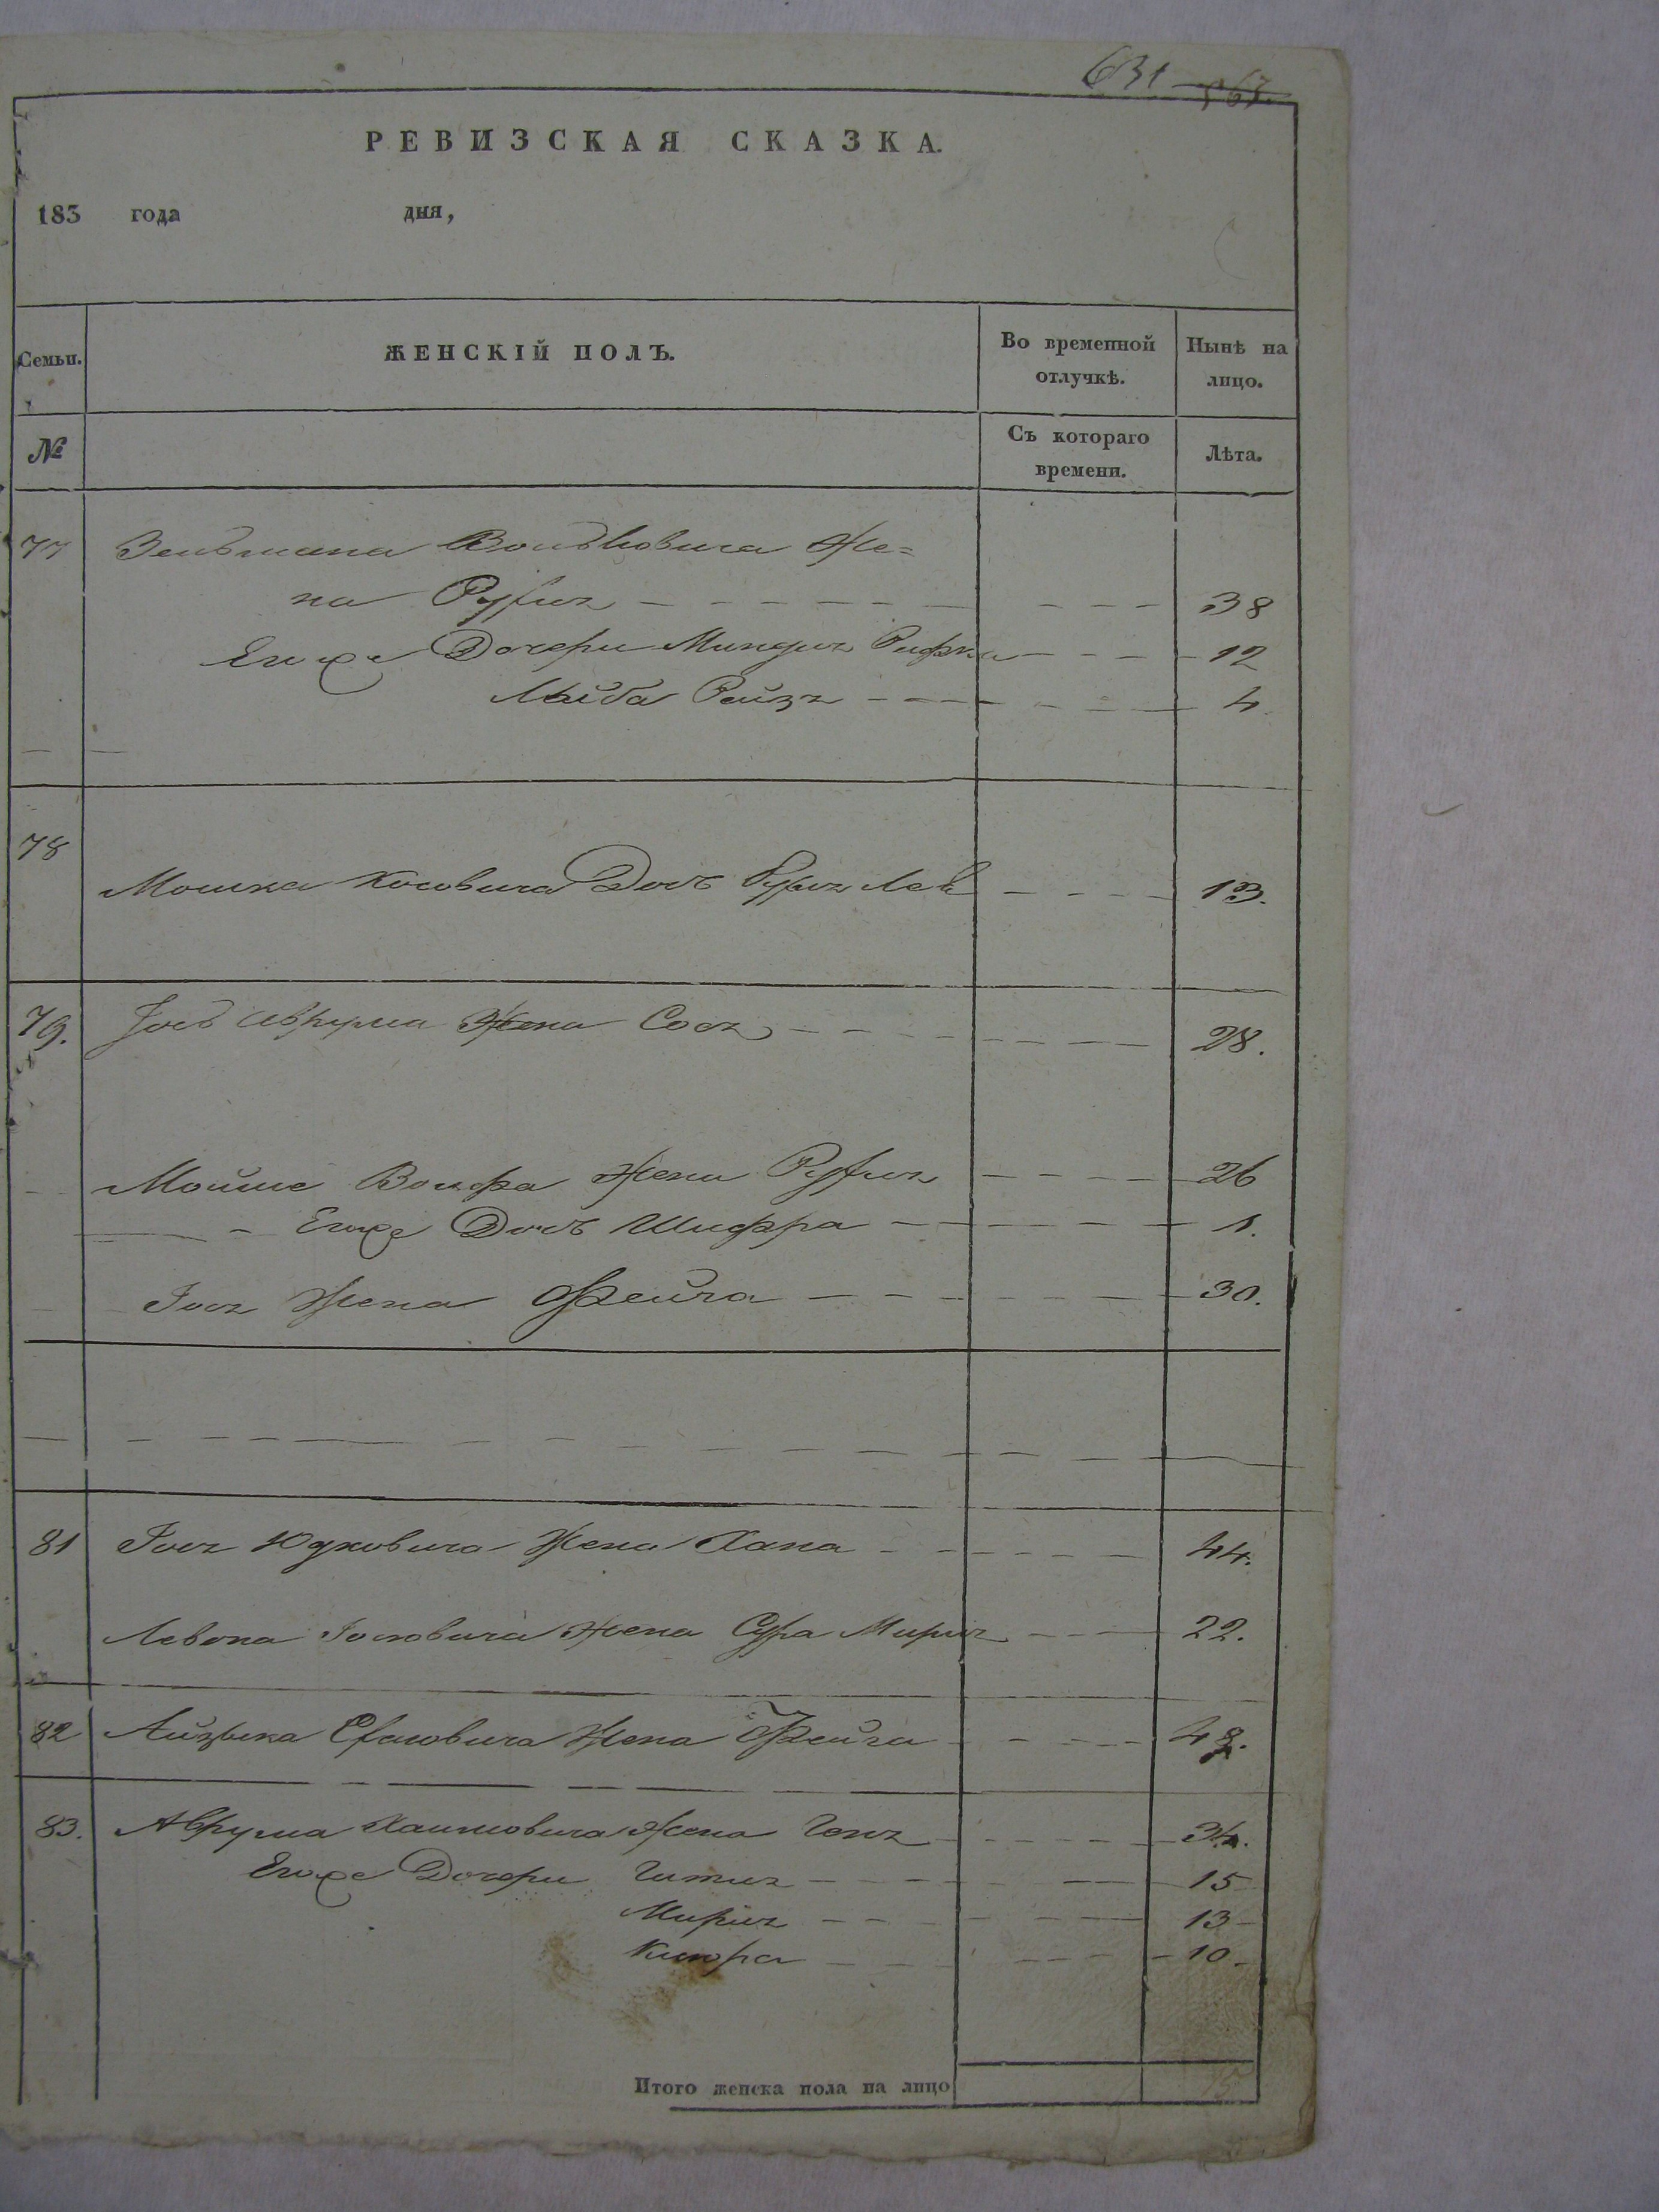 631 563.
РЕВИЗСКАЯ СКАЗКА.
183 года дня,
Семьи. ЖЕНСКІЙ ПОЛЪ. Во временной отлучкѣ. Нынѣ на лицо.
№ Съ котораго времени. Лѣта.
77 Зельмана Вольковича Же=
на Рухля 38
Егоже Дочери Миндля Рифка 12
Лейба Рейзя 4
78
Мошка Дочь Лея 13.
79. Іось Аврума Жена Сося 28.
Мойше Вольфа Жена Рухля 26
Егоже Дочь Шифра 1.
Іося Жена Фейга 30.
81 Іося Юдковича Жена Хана 44.
Левона Іосіовича Жена Сура Мирія 22.
82 Айзыка Жена Фейга 48.
83. Аврума Хаимовича Жена Геня 34.
Егоже Дочери Гитля 15
Мирія 13
10
Итого женска пола на лицо 15